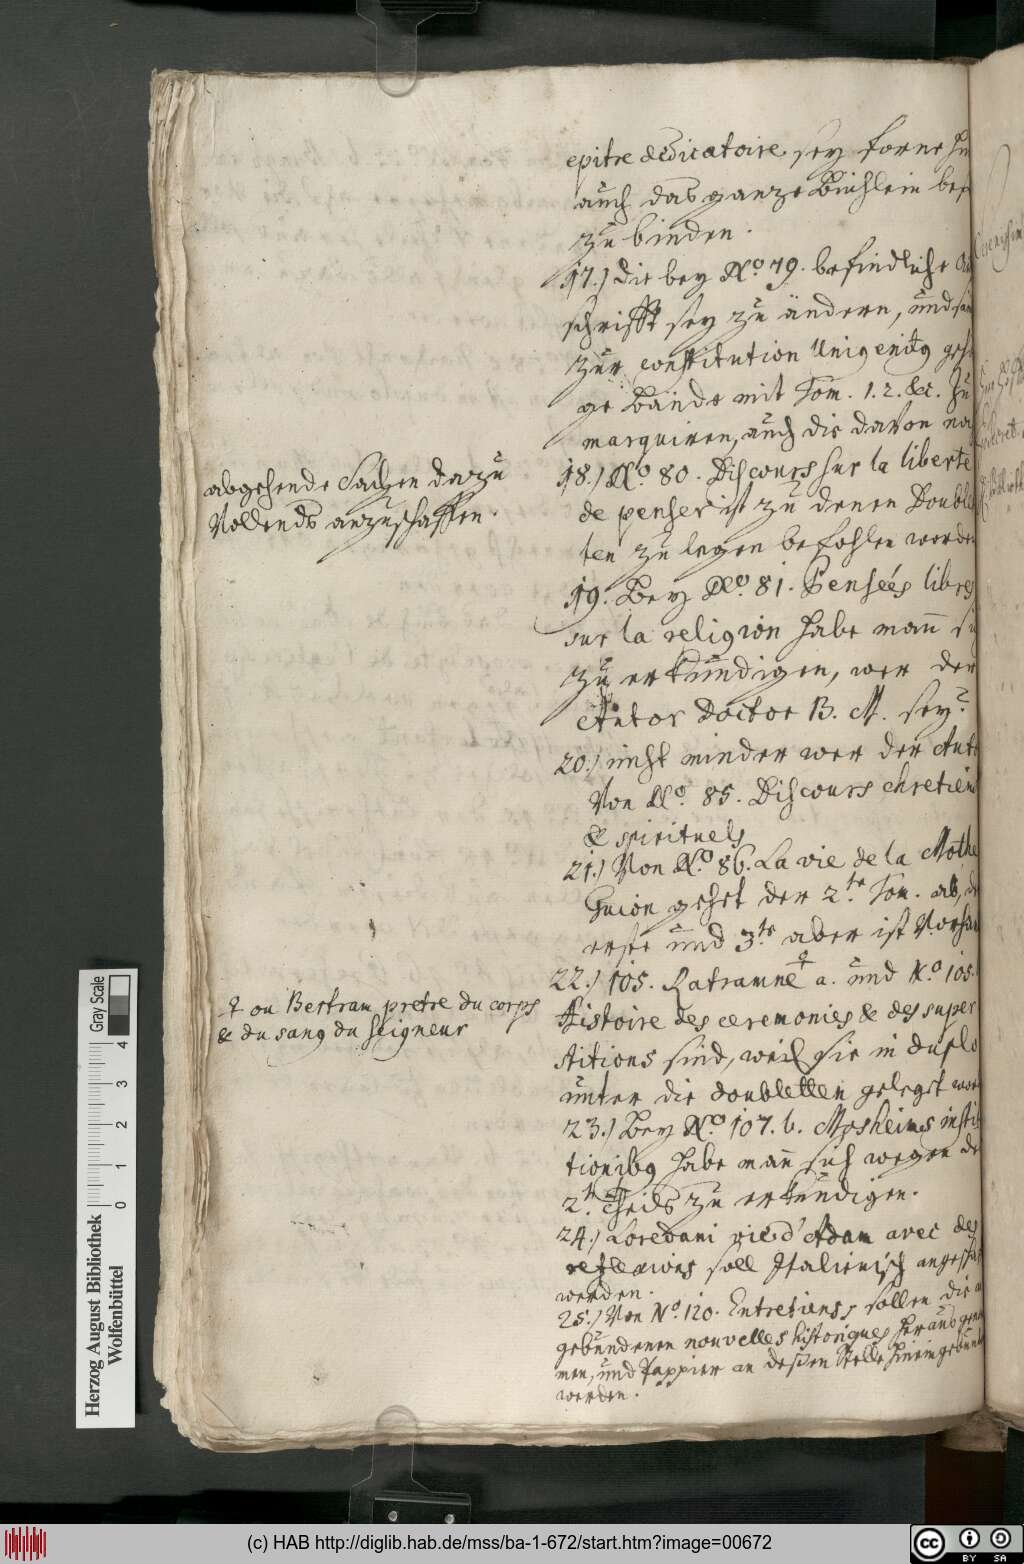 epitre dedicatoire sey forne
auch das ganze Büchlein
zu binden.
17.) die bey No. 79. befindliche
schrifft sey zu ändern, und
zur constitution Unigenitus
ge Bände mit Tom. 1. 2. &c.
marquiren, auch die davon
abgehende Sachen dazu
Vollends anzuschaffen.
18.) No. 80. Discours sur la liberte
de penser ist zu denen Double
ten zu legen befohlen worden
19. Bey No. 81. Pensées libres
sur la religion habe mañ
zu erkundigen, wer der
Autor Doctor B. M. sey?
20.) nicht minder wer der Auto
Von No. 85. Discours chretiens
& spirituels
21.) Von No. 86. La vie de la Mothe
Guion gehet der 2.te Tom. ab,
erste und 3.te aber ist Vorhan
22.) 105. Ratramne a. und No. 105.
ou Bertram pretre du corps
& du sang du seigneur
Histoire des ceremonies & des super
stitions sind, weil sie in duplo
unter die doubletten gelegt
23.) Bey No. 107. b. Mosheims insti
tionibus habe mañ sich wegen
2.ten Theils zu erkundigen.
24.) Loredani vie d'Adam avec des
reflexions soll Italienisch angeschaf
werden.
25.) Von No. 120. Entretiens, sollen die
gebundenen nouvelles historiques heraus genom
men, und Pappier an deßen Stelle hinein gebunden
werden.
Gray Scale
0 1 2 3 4
Herzog August Bibliothek
Wolfenbüttel
(c) HAB http://diglib.hab.de/mss/ba-1-672/start.htm?image=00672
cc BY SA